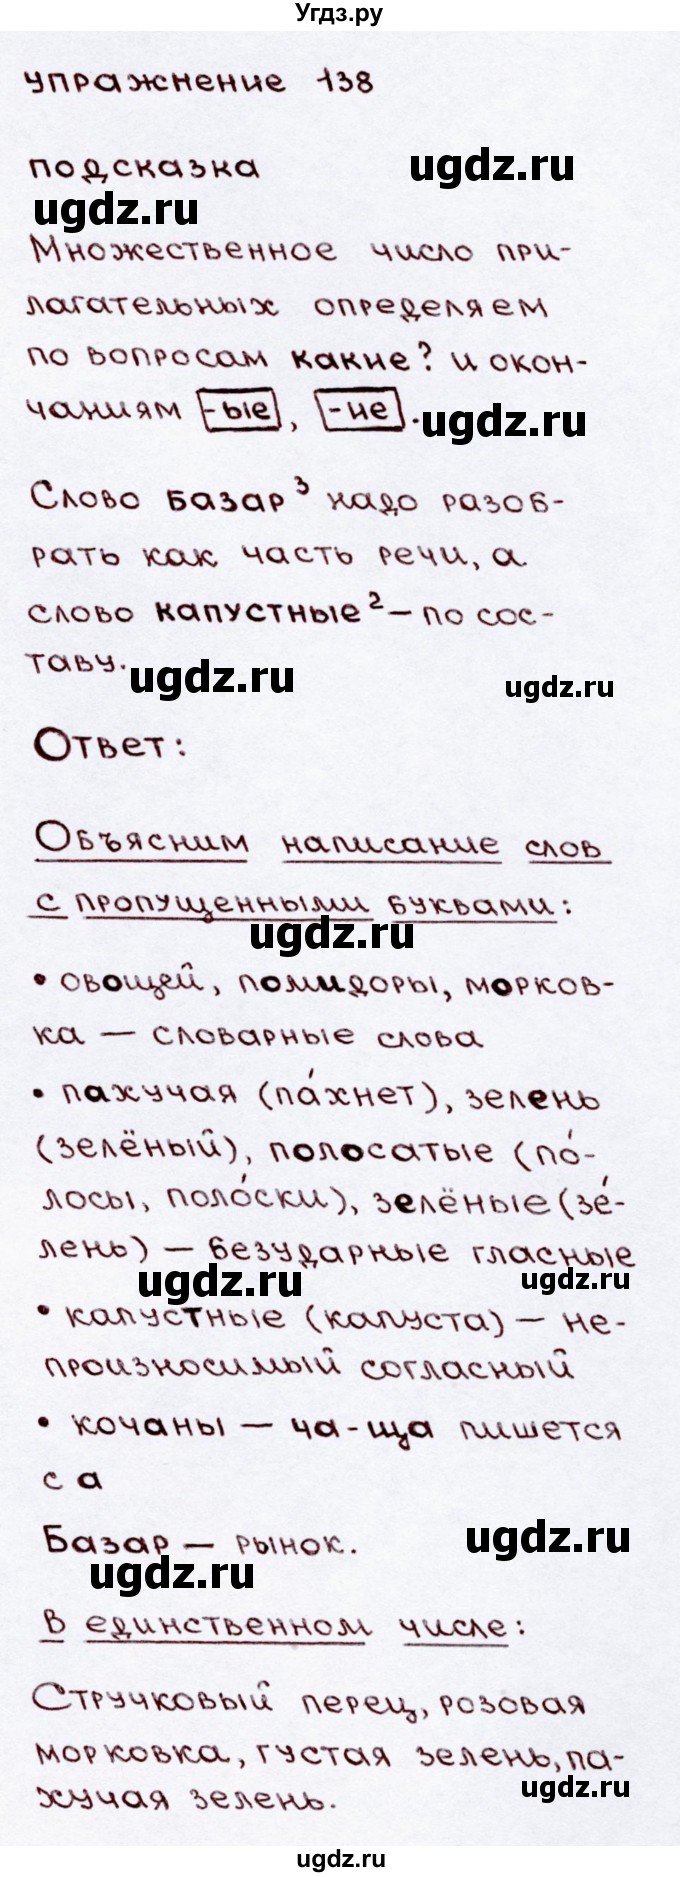 Угдз.ру
упражнение 138
подсказка
ugdz.ru
ugdz.ru
Множественное число при-
лагательных определяем
по вопросам какие? и окон-
чаниям -ые, -ие.
ugdz.ru
Слово базар³ надо разоб-
рать как часть речи, а
слово капустные² – по сос-
таву.
ugdz.ru
ugdz.ru
Ответ:
Объясним написание слов
с пропущенными буквами:
ugdz.ru
• овощей, помидоры, морков-
ка — словарные слова
• пахучая (па́хнет), зелень
(зелёный), полосатые (по́-
лосы, поло́ски), зелёные (зе́-
лень) — безударные гласные
ugdz.ru
ugdz.ru
• капустные (капуста) — не-
произносимый согласный
• кочаны — ча-ща пишется
с а
Базар — рынок.
ugdz.ru
ugdz.ru
В единственном числе:
Стручковый перец, розовая
морковка, густая зелень, па-
хучая зелень.
ugdz.ru
ugdz.ru